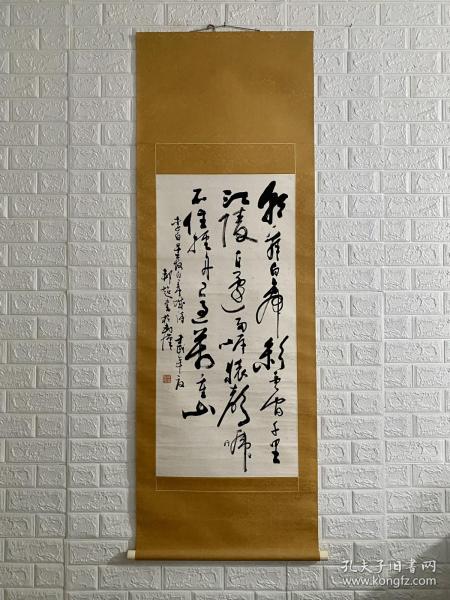 朝辞白帝彩云间千里
江陵一日还两岸猿声啼
不住轻舟已过万重山
李白早发白帝城诗
书于武汉
孔夫子旧书网
www.kongfz.com